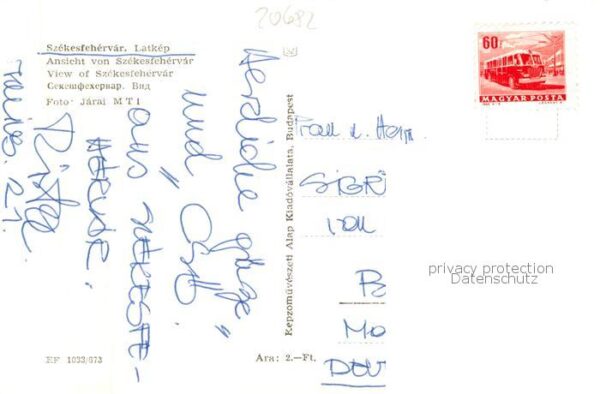 20682
Székesfehérvár. Latkép
Ansicht von Székesfehérvár
View of Székesfehérvár
Секешфехервар. Вид
Foto: Járai MTI
Herzliche Grüße
und
aus SZÉKESFE-
HÉRVÁR.
21.
EF 1033/673
Ára: 2.—Ft.
Képzőművészeti Alap Kiadóvállalata, Budapest
60f
MAGYAR POSTA
Frau u. Herrn
SIGR
von
B
Mo
DEU
privacy protection
Datenschutz